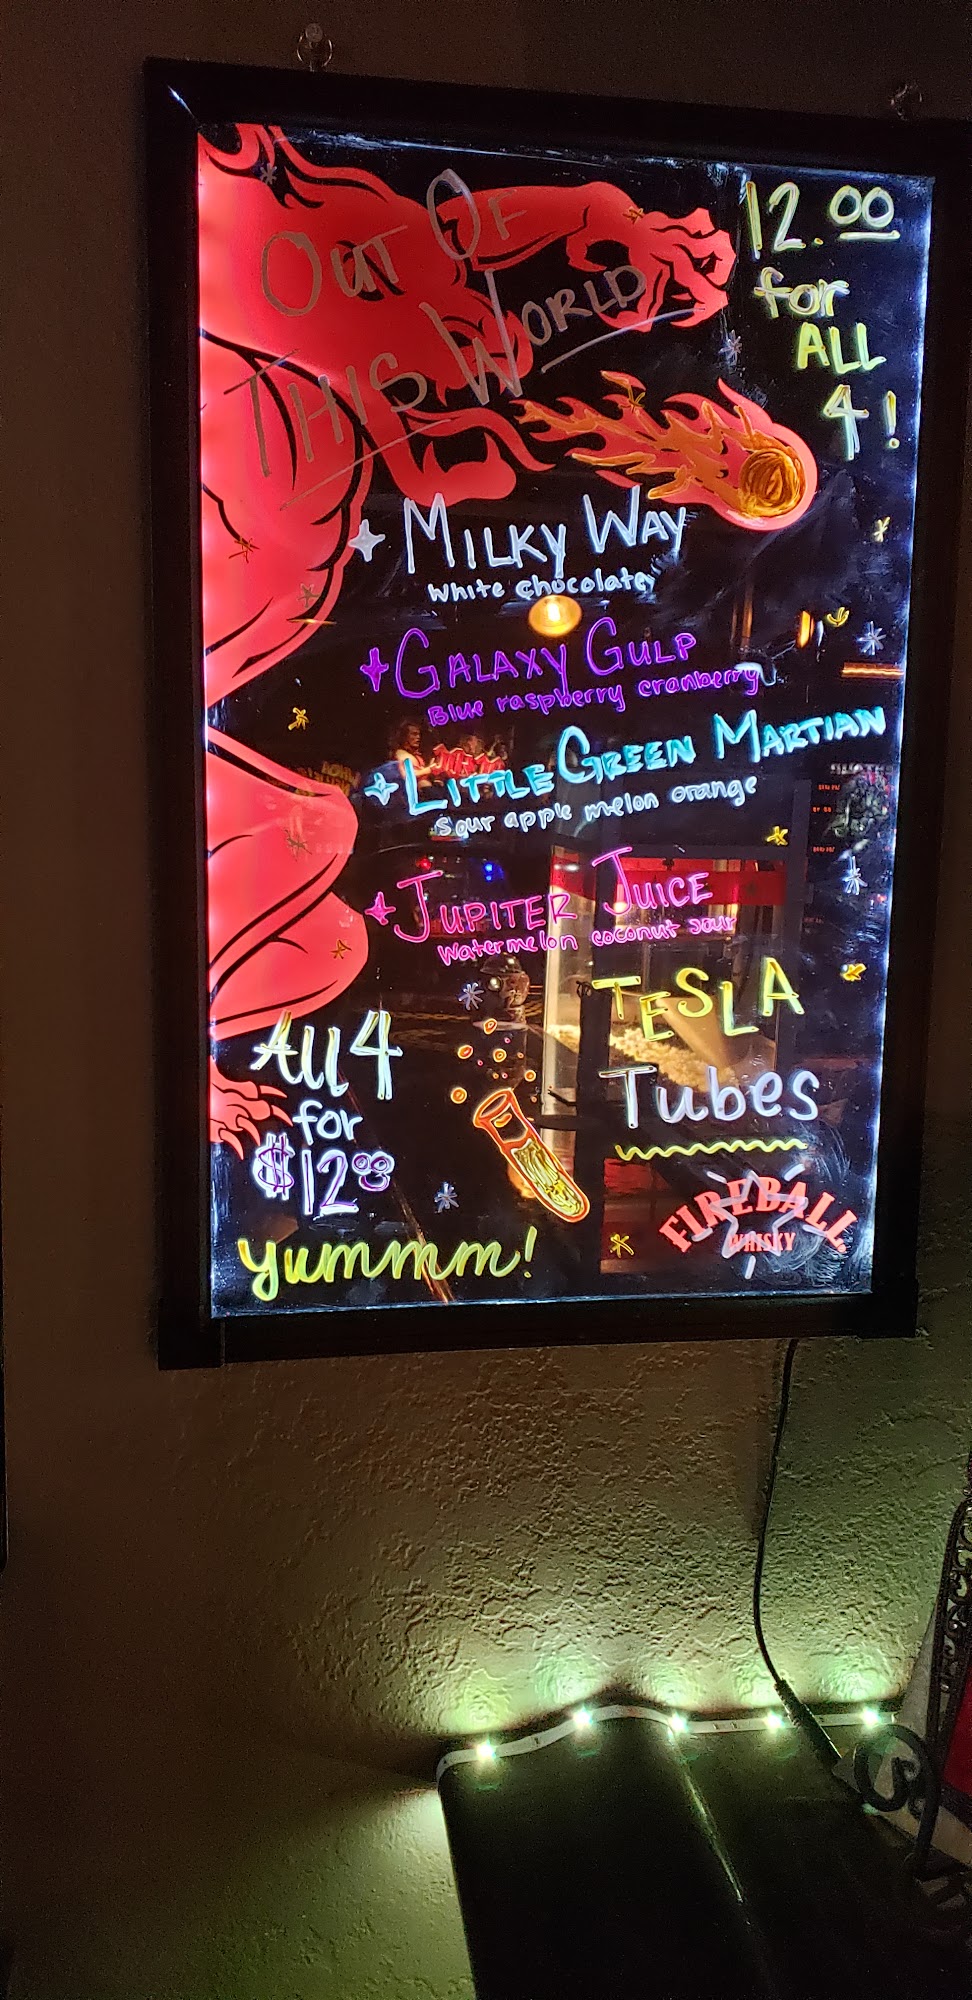 OUT OF
THIS WORLD
12.00
for
ALL
4!
MILKY WAY
white chocolate
GALAXY GULP
Blue raspberry cranberry
LITTLE GREEN MARTIAN
sour apple melon orange
JUPITER JUICE
Watermelon coconut sour
TESLA
Tubes
All 4
for
$12.00
yummm!
FIREBALL
WHISKY